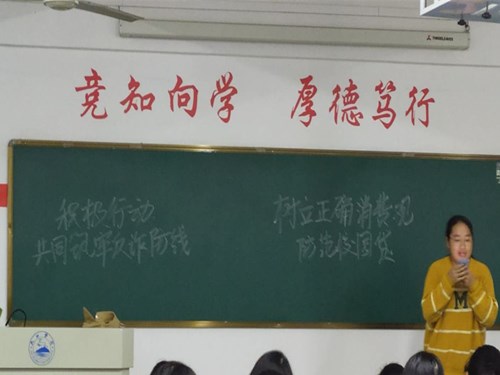 竞知向学 厚德笃行
积极行动
共同筑牢反诈防线
树立正确消费观
防范校园贷
M